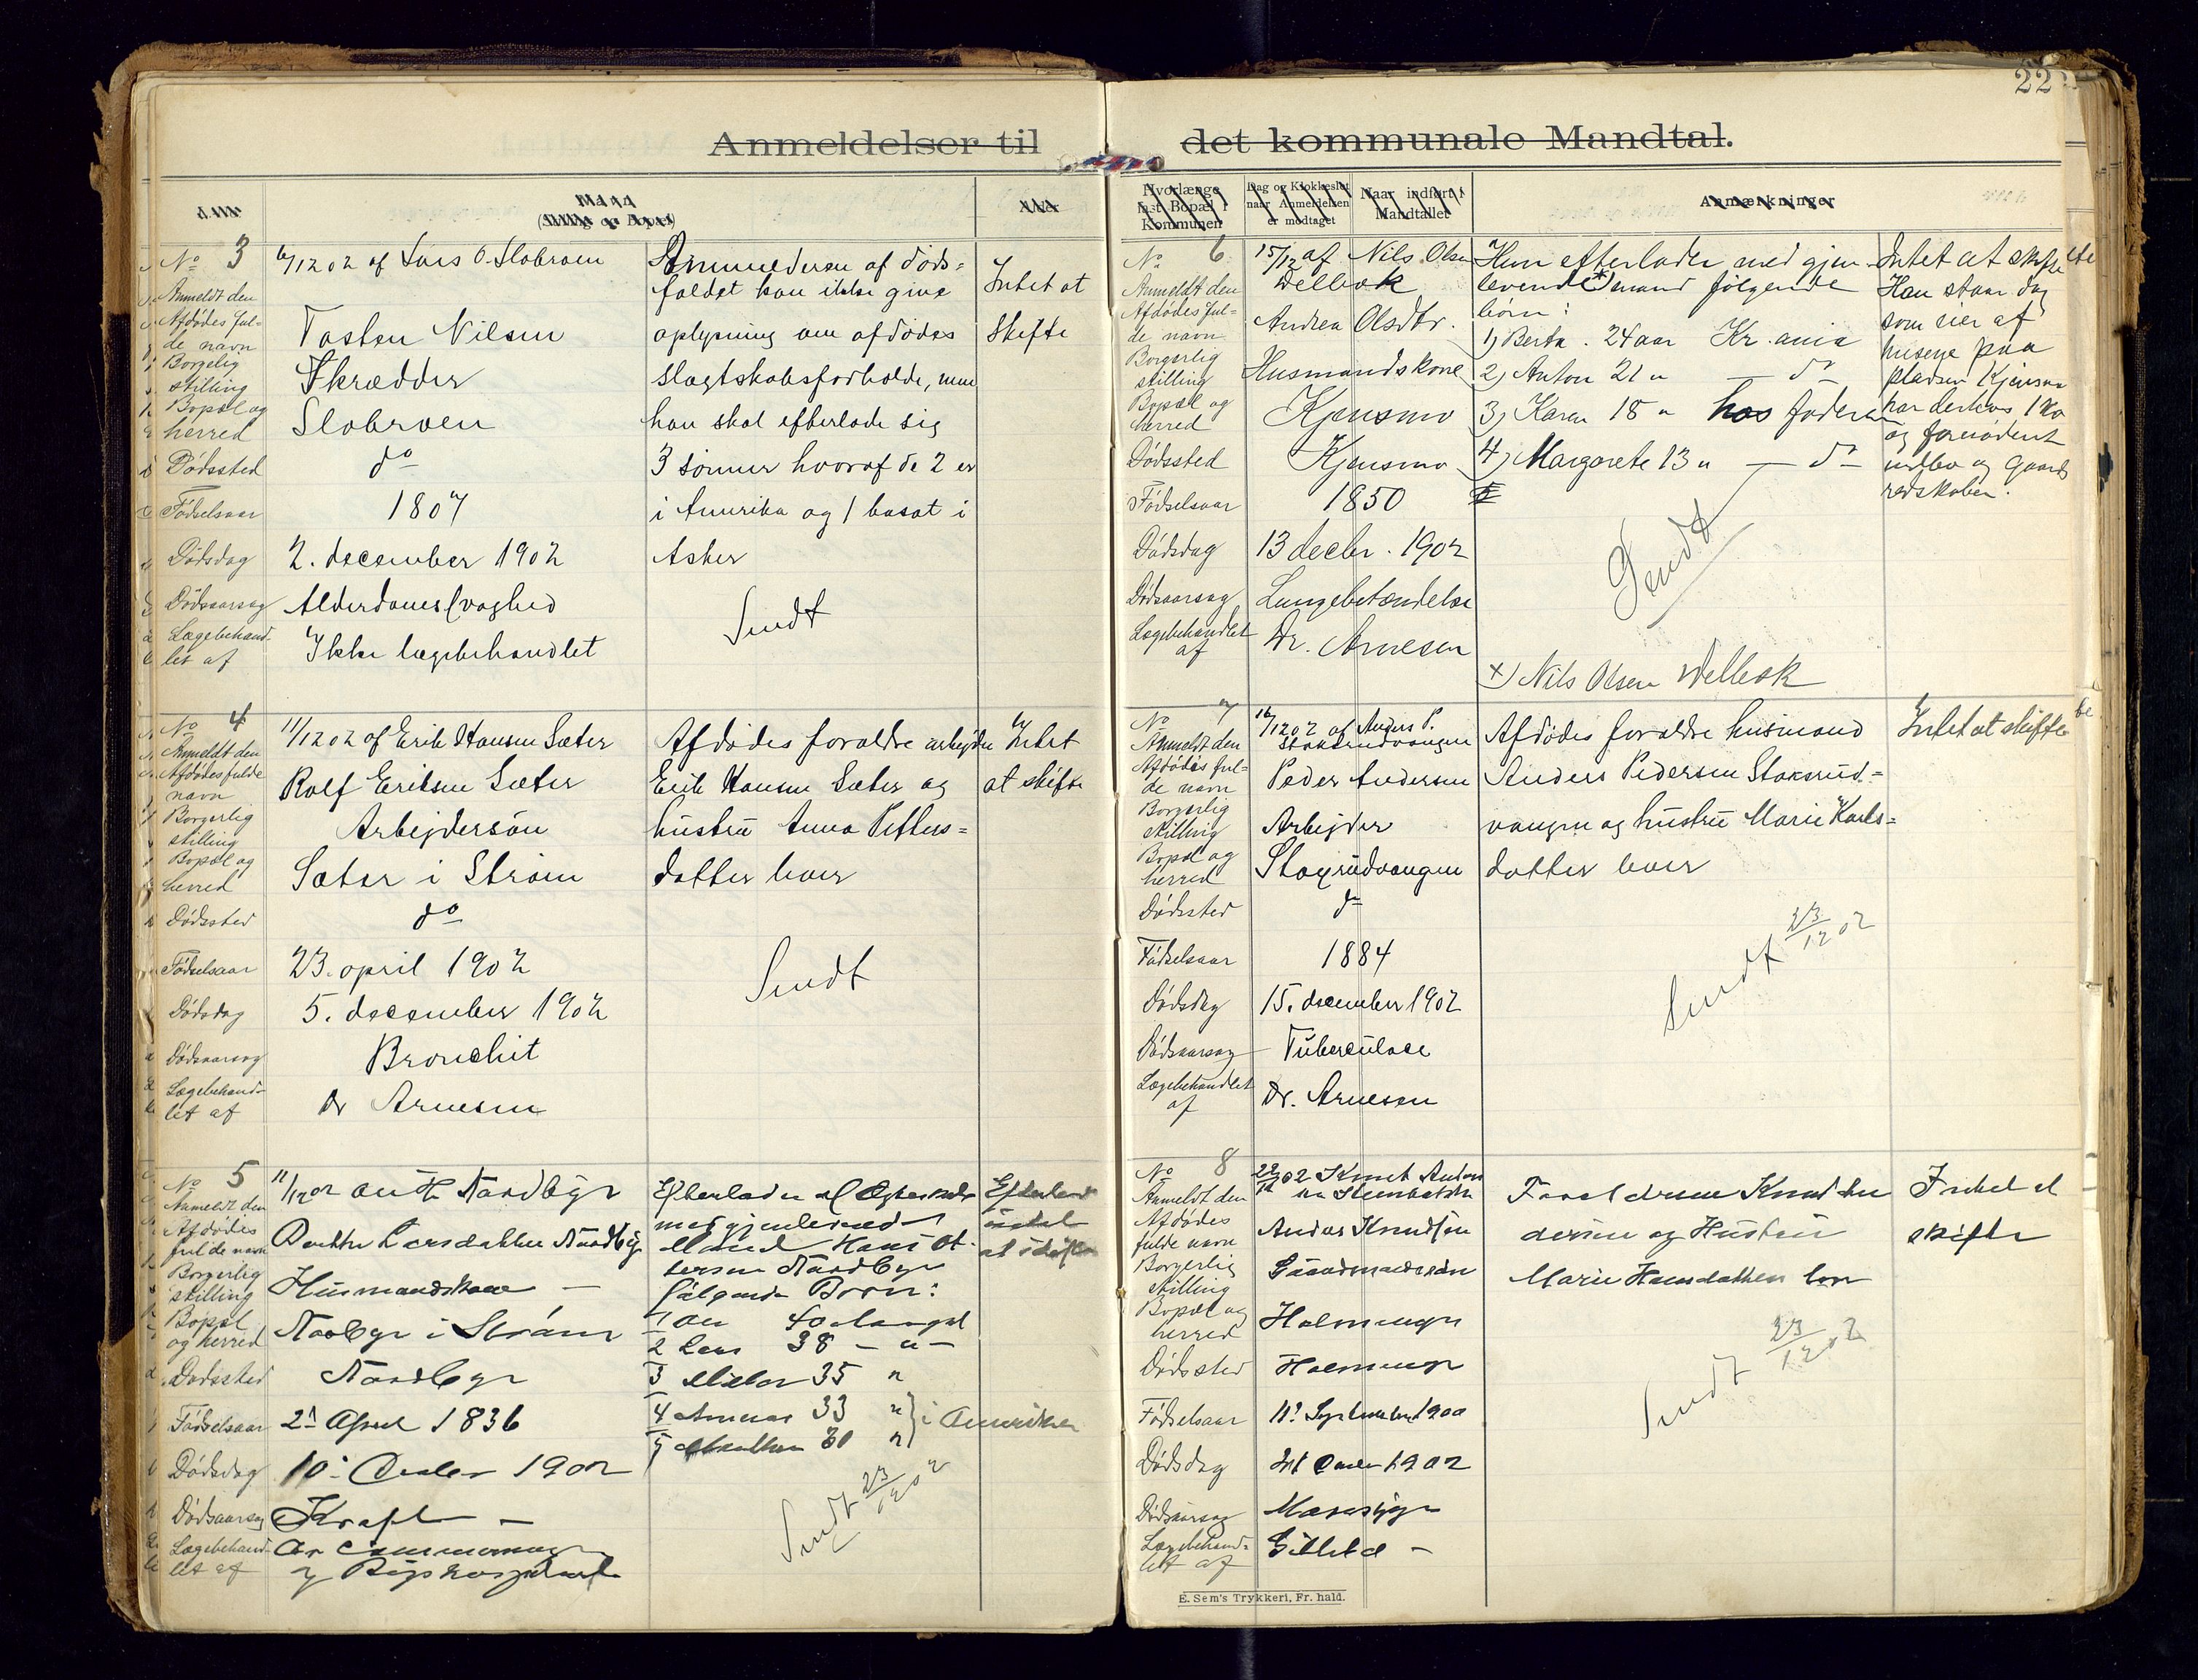 22
Anmeldelser til det kommunale Mandtal.
(Stilling og Bopæl)
Hvorlænge
fast Bopæl i
Kommunen
Dag og Klokkeslet
naar Anmeldelsen
er modtaget
Naar indført i
Mandtallet
Anmærkninger
No 3
6/12 02 af Lars O. Slobraaen
Anmeldt den
Afdødes ful-
de navn
Tosten Nilsen
Borgelig
stilling
Skrædder
Bopæl og
herred
Slobraaen
Dødssted
do
Fødselsaar
1807
Dødsdag
2. december 1902
Dødsaarsag
Alderdomssvaghed
Lægebehand-
let af
Ikke lægebehandlet
Anmelderen af døds-
faldet kan ikke give
oplysning om afdødes
slægtskabsforholde, men
han skal efterlade sig
3 sønner hvoraf de 2 er
i Amerika og 1 bosat i
Asker
Sendt
Intet at
skifte
No 4
11/12 02 af Erik Hansen Sæter
Anmeldt den
Afdødes fulde
navn
Rolf Eriksen Sæter
Borgerlig
stilling
Arbejdersøn
Bopæl og
herred
Sæter i Strøm
Dødssted
do
Fødselsaar
23. april 1902
Dødsdag
5. december 1902
Dødsaarsag
Bronchit
Lægebehand-
let af
Dr Arnesen
Afdødes forældre arbejder
Erik Hansen Sæter og
hustru Anna
datter lever
Sendt
Intet
at skifte
No 5
11/12 02
Anmeldt den
Afdødes
fulde navn
Larsdatter
Borgerlig
stilling
Husmandskone
Bopæl
og herred
i Strøm
Dødssted
Fødselsaar
April 1836
Dødsdag
10. Decbr 1902
Dødsaarsag
Kræft
Lægebehand-
let af
og Rigshospitalet
Efterlader
med gjenlevende
Mand Hans
følgende Børn:
1 40
2 Lars 38 - " -
3 35 "
4 33 "
5 30 "
i Amerika
Sendt 23/12 02
at skifte
No 6
15/12 af Nils Olsen
Velbæk
Anmeldt den
Afdødes ful-
de navn
Andrea Olsdtr.
Borgerlig
stilling
Husmandskone
Bopæl og
herred
Kjensmo
Dødssted
Kjensmo
Fødselsaar
1850
Dødsdag
13 decbr. 1902
Dødsaarsag
Lungebetændelse
Lægebehandlet
af
Dr. Arnesen
Hun efterlader med gjen-
levende mand følgende
børn:
1) Berta. 24 aar Kr.ania
2) Anton 21 " — do
3) Karen 18 " hos faderen
4) Margarete 13 " — do
Sendt
x) Nils Olsen Velbæk
Intet at skifte
Han staar dog
som eier af
husene paa
pladsen Kjensmo
har derhos 1 ko
og fornødent
indbo og gaards
redskaber.
No 7
16/12 02 af Anders P.
Stoksrudvangen
Anmeldt den
Afdødes ful-
de navn
Peder Andersen
Borgerlig
stilling
Arbejder
Bopæl og
herred
Stoxrudvangen
Dødssted
do
Fødselsaar
1884
Dødsdag
15. december 1902
Dødsaarsag
Tuberculose
Lægebehandlet
af
Dr. Arnesen
Afdødes forældre husmand
Anders Pedersen Stoksrud-
vangen og hustru Marie Karls-
datter lever
Sendt 23/12 02
Intet at skifte
No 8
22/12 02 Knut
Anmeldt den
Afdødes
fulde navn
Anders Knudsen
Borgerlig
stilling
Gaardmandssøn
Bopæl og
herred
Dødssted
Fødselsaar
September 1900
Dødsdag
1902
Dødsaarsag
Lægebehand-
let af
Forældrene Knud An-
dersen og Hustru
Marie Hansdatter lever
Sendt 23/12 02
Intet at
skifte
E. Sem's Trykkeri, Fr. hald.